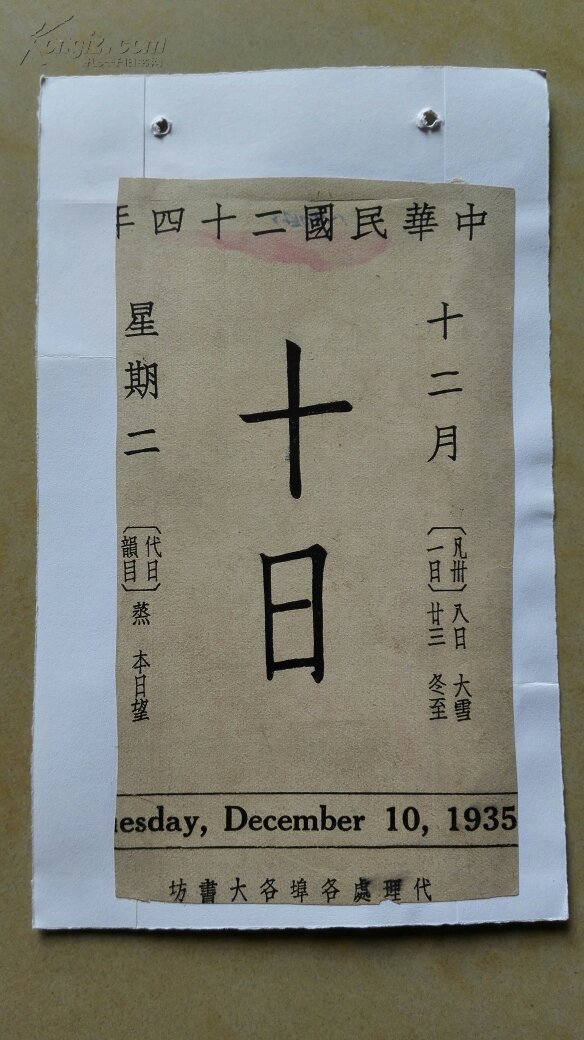 Kongfz.com
中華民國二十四年
十二月
〔凡卅一日〕八日 大雪
廿三 冬至
十日
星期二
〔代日韻目〕蒸 本日望
uesday, December 10, 1935
代理處各埠各大書坊